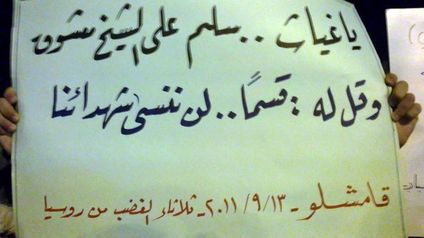 يا غياث .. سلم على الشيخ معشوق
وقل له : قسمًا .. لن ننسى شهدائنا
قامشلو - ٢٠١١/٩/١٣ - ثلاثاء الغضب من روسيا